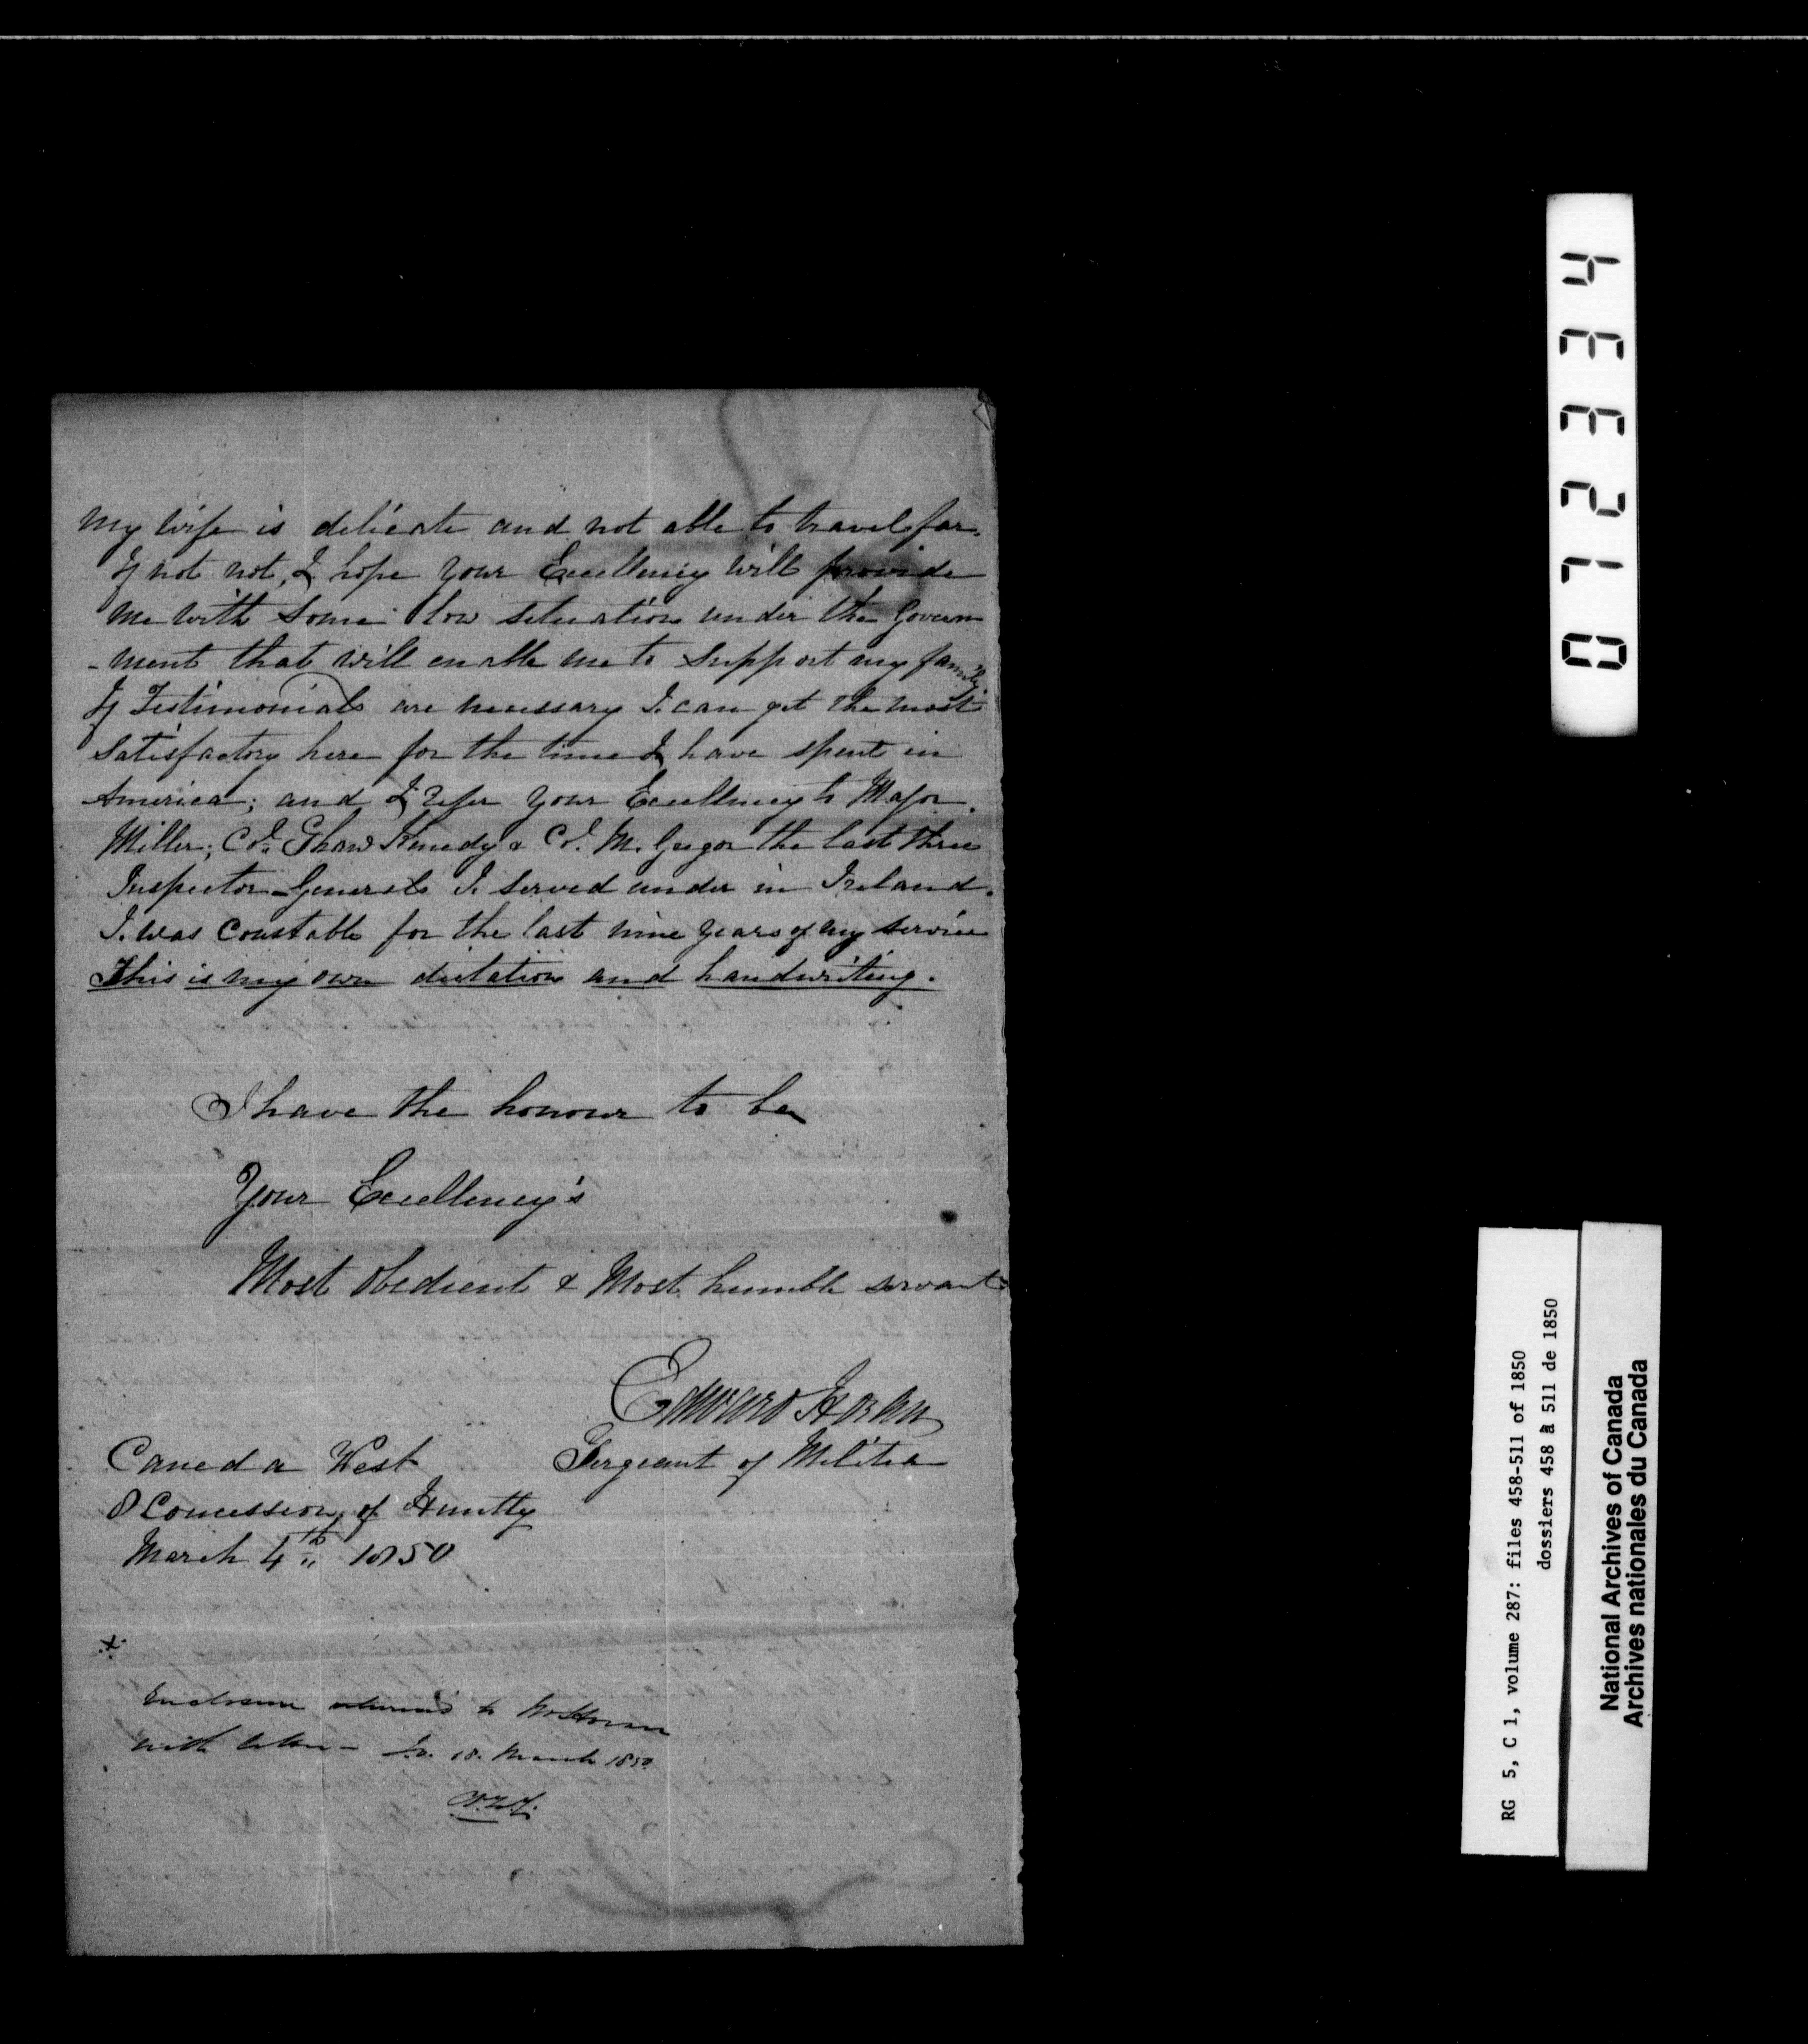 My wife is delicate and not able to travel far.
If not not, I hope your Excellency will provide
me with some low situation under the Govern
-ment that will enable me to support my family.
If Testimonials are necessary I can get the most
satisfactory here for the time I have spent in
America; and I refer your Excellency to Major
Miller; Col. Shaw Kenedy & Col. McGregor the last three
Inspector-Generals I served under in Ireland.
I was Constable for the last nine years of my service
This is my own dictation and handwriting.
I have the honour to be
Your Excellency's
Most obedient & Most humble servant
Edward Horan
Sergeant of Militia
Caneda West
8 Concession of Huntly
March 4th 1850
Enclosure returned to Mr Horan
with letter - 18. March 1850
07233 4
RG 5, C 1, volume 287: files 458-511 of 1850
dossiers 458 à 511 de 1850
National Archives of Canada
Archives nationales du Canada